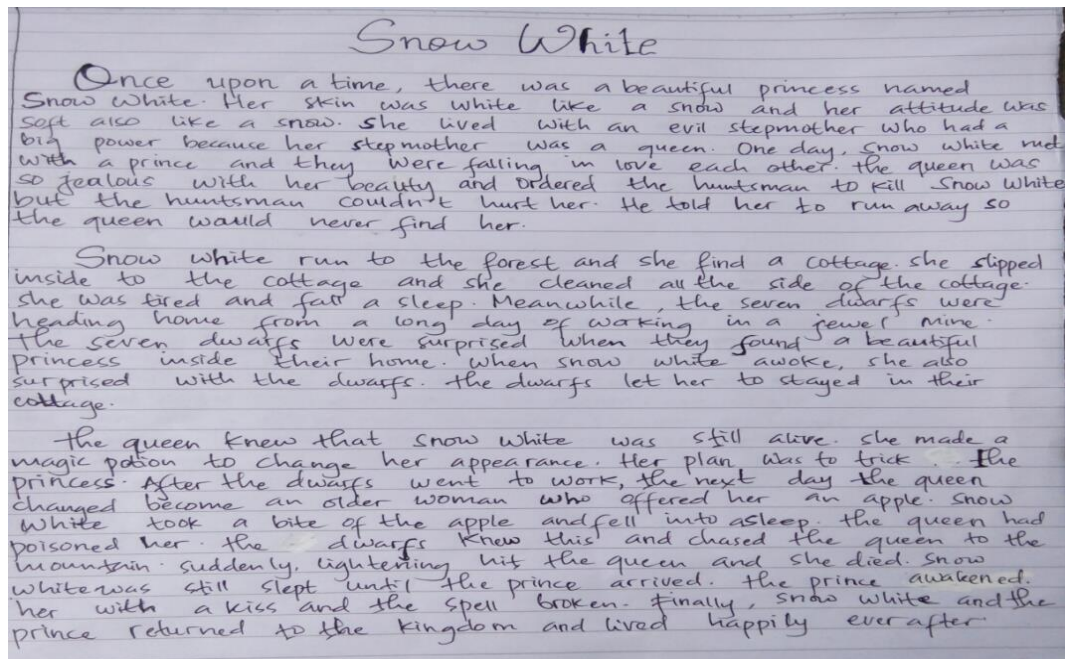 Snow White
Once upon a time, there was a beautiful princess named
Snow White. Her skin was white like a snow and her attitude was
soft also like a snow. She lived with an evil stepmother who had a
big power because her stepmother was a queen. One day, snow white met
with a prince and they were falling in love each other. the queen was
so jealous with her beauty and ordered the huntsman to kill Snow White
but the huntsman couldn't hurt her. He told her to run away so
the queen would never find her.
Snow white run to the forest and she find a cottage. she slipped
inside to the cottage and she cleaned all the side of the cottage.
she was tired and fall a sleep. Meanwhile, the seven dwarfs were
heading home from a long day of working in a jewel mine.
the seven dwarfs were surprised when they found a beautiful
princess inside their home. when snow white awoke, she also
surprised with the dwarfs. the dwarfs let her to stayed in their
cottage.
the queen knew that snow white was still alive. she made a
magic potion to change her appearance. Her plan was to trick the
princess. After the dwarfs went to work, the next day the queen
changed become an older woman who offered her an apple. snow
white took a bite of the apple and fell into asleep. the queen had
poisoned her. the dwarfs knew this and chased the queen to the
mountain. suddenly, lightening hit the queen and she died. snow
white was still slept until the prince arrived. the prince awakened.
her with a kiss and the spell broken. finally, snow white and the
prince returned to the kingdom and lived happily ever after.